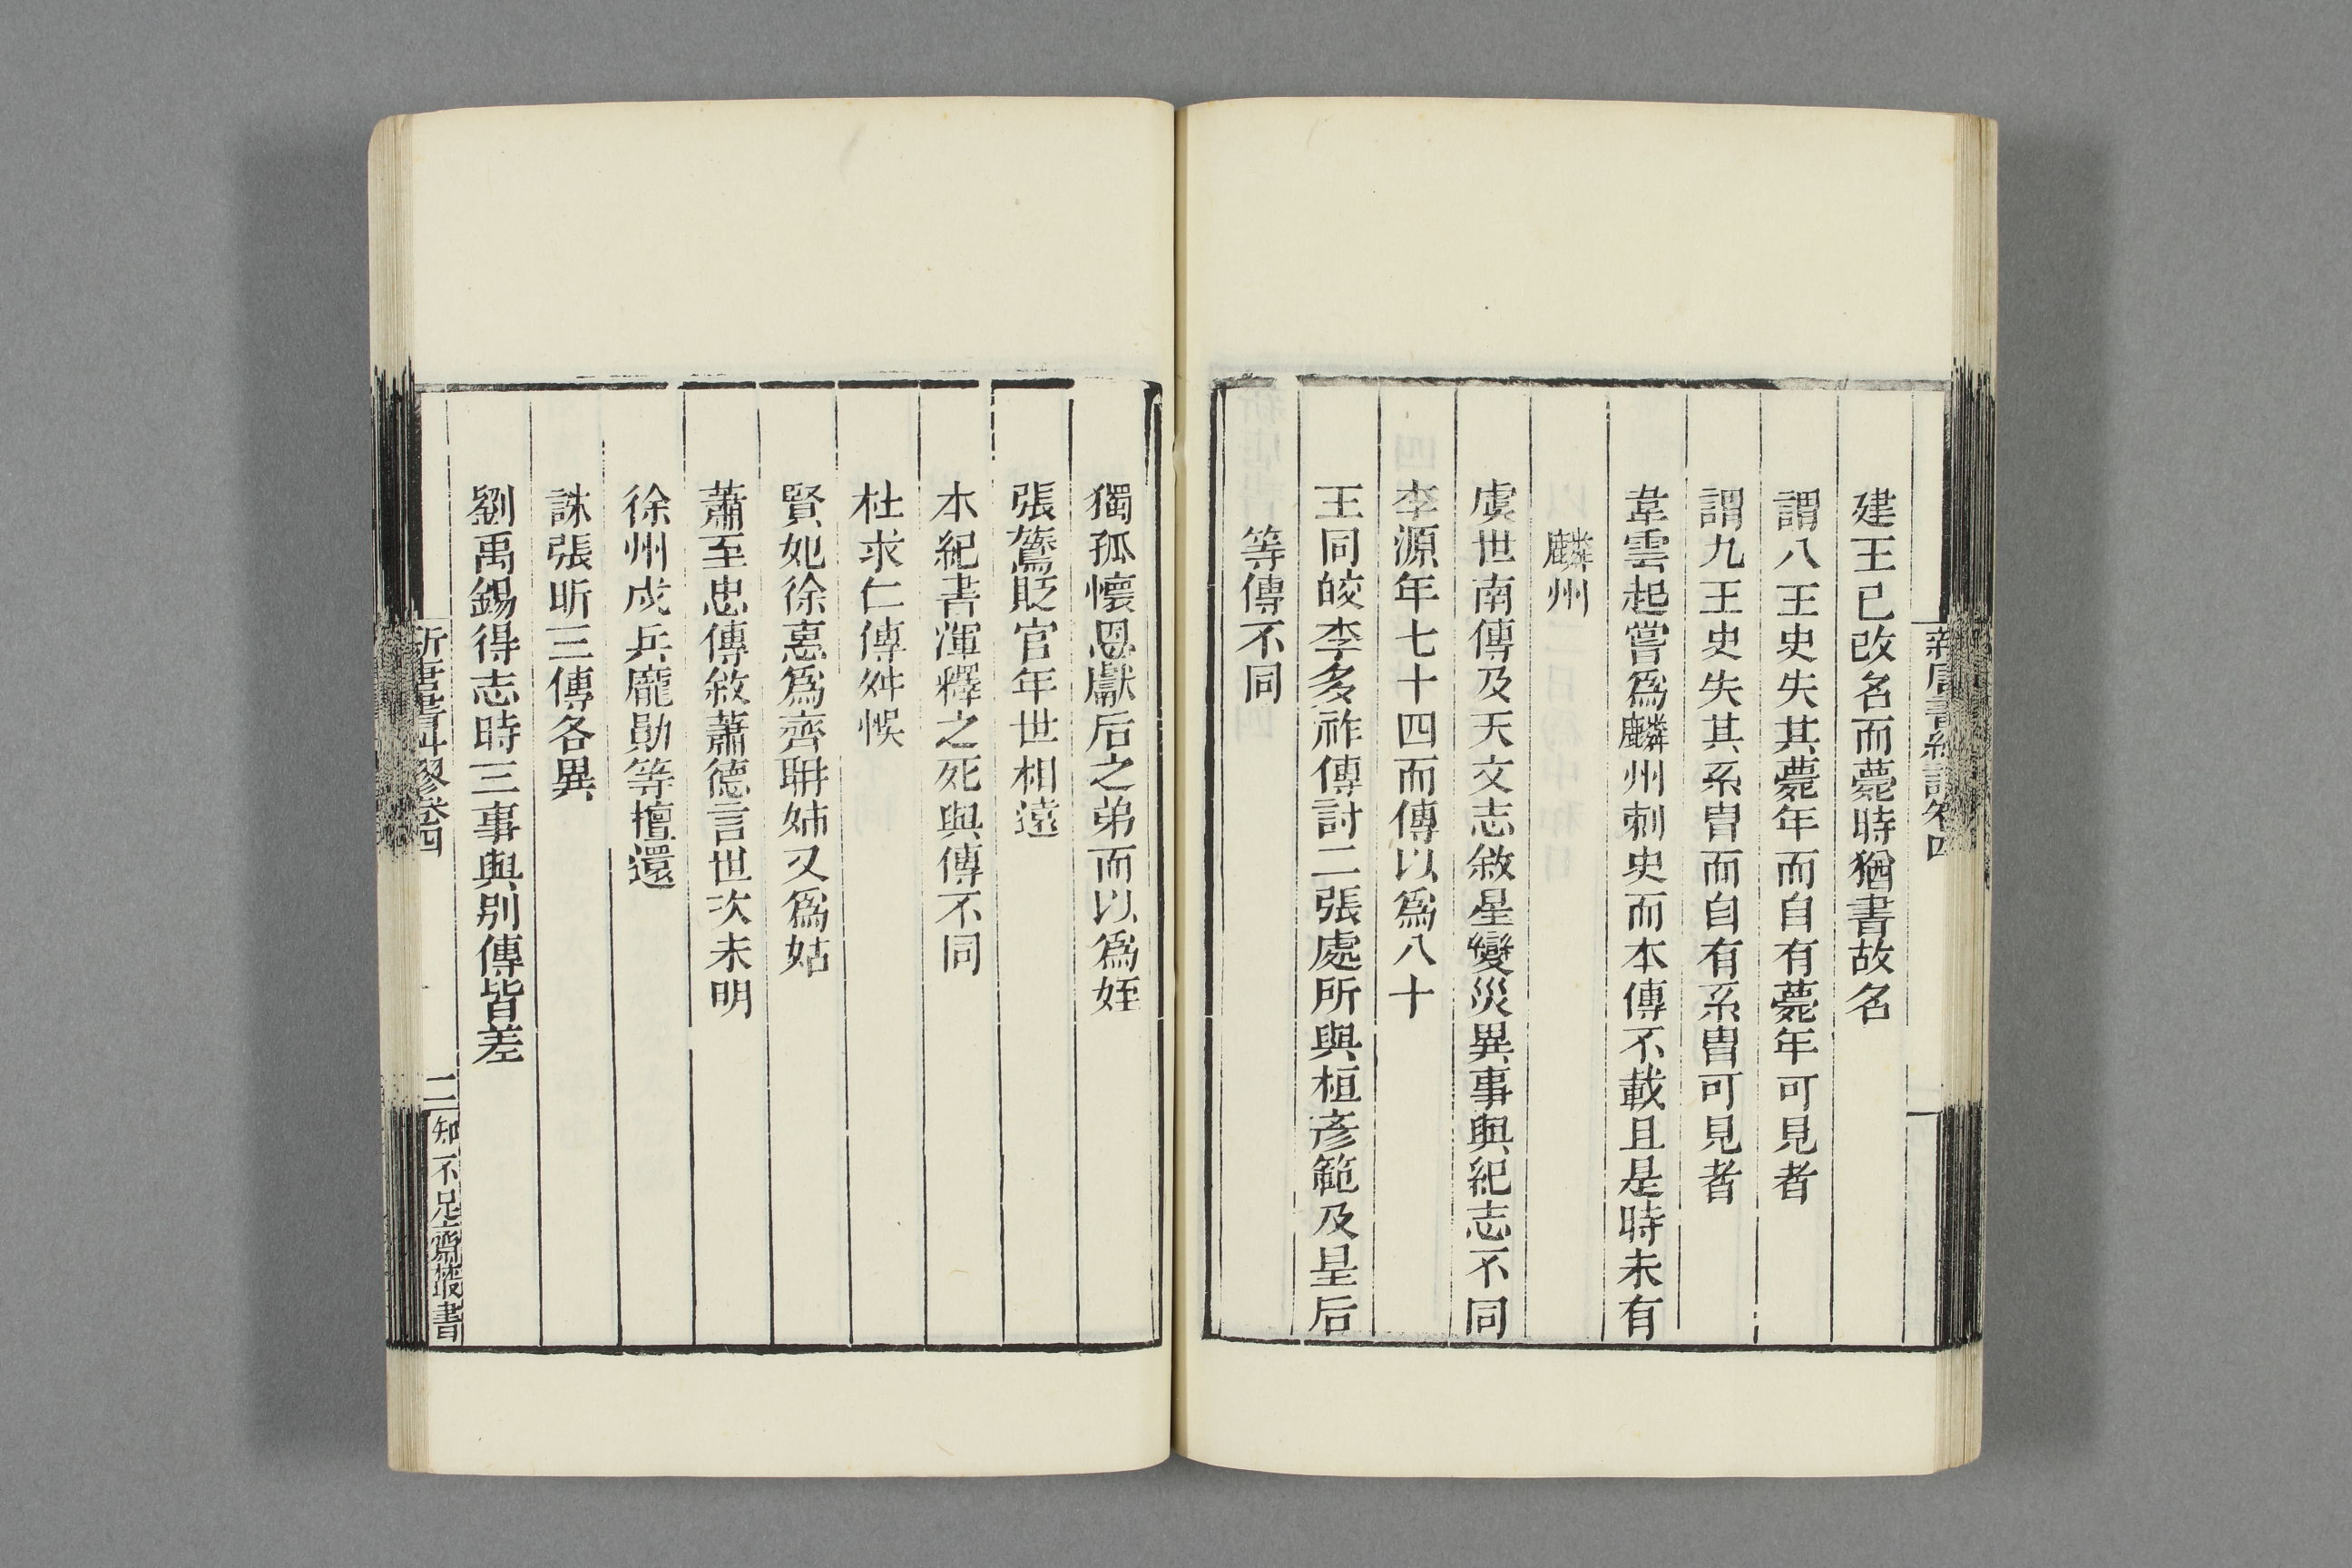 建王已改名而薨時猶書故名
謂八王史失其薨年而自有薨年可見者
謂九王史失其系胄而自有系胄可見者
韋雲起嘗爲麟州刺史而本傳不載且是時未有
麟州
虞世南傳及天文志敘星變災異事與紀志不同
李源年七十四而傳以爲八十
王同皎李多祚傳討二張處所與桓彥範及皇后
等傳不同
獨孤懷恩獻后之弟而以爲姪
張鷟貶官年世相遠
本紀書渾釋之死與傳不同
杜求仁傳舛悞
賢妃徐惠爲齊聃姊又爲姑
蕭至忠傳敘蕭德言世次未明
徐州戍兵龐勛等擅還
誅張昕三傳各異
劉禹錫得志時三事與別傳皆差
新唐書糾繆卷四
二
知不足齋叢書